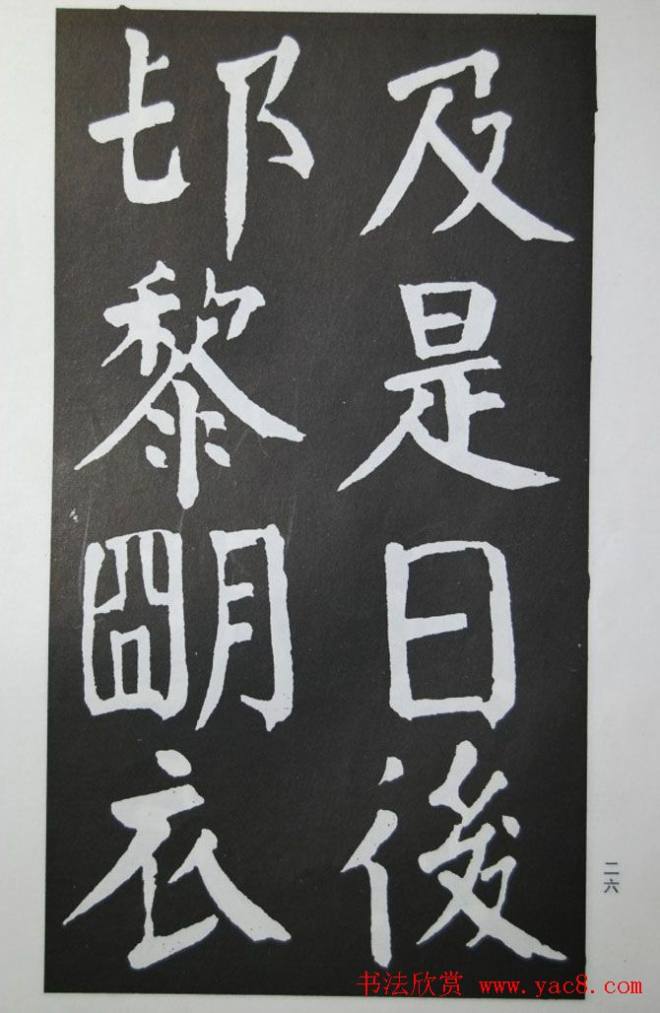 及是日後
邙黎朙衣
二六
书法欣赏 www.yac8.com